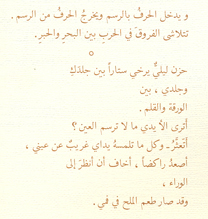 و يدخل الحرفُ بالرسم ويخرجُ الحرفُ من الرسم .
تتلاشى الفروقُ في الحربِ بين البحرِ والحبرِ .
o
حزن ليليٌّ يرخي ستاراً بين جلدكِ
وجلدي ، بين
الورقة والقلم .
أترى الآ يدي ما لا ترسم العين ؟
أتعثّرُ ـ وكل ما تلمسهُ يداي غريبٌ عن عيني ،
أصعدُ راكضاً ، أخاف أن أنظرَ إلى
الوراء ،
وقد صار طعم الملح في فمي .